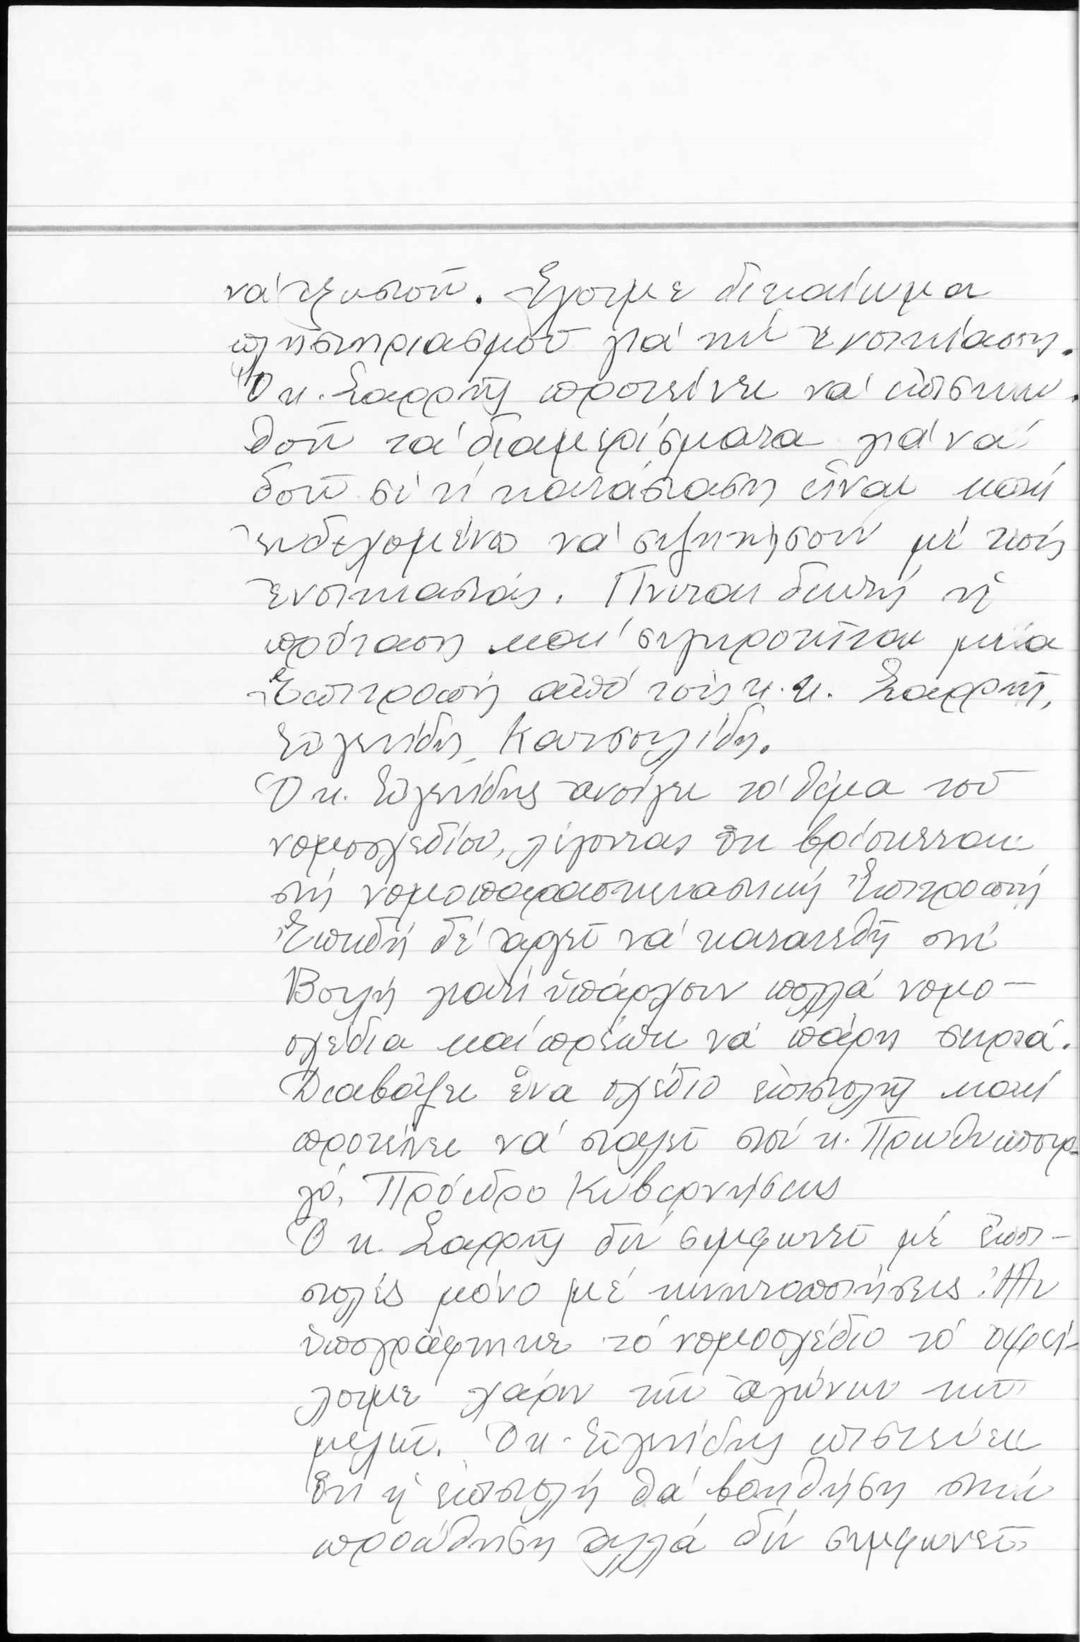 νά χτιστοῦν. Ἔχουμε δικαίωμα
πλειστηριασμοῦ γιά τήν ἐνοικίαση.
Ὁ κ. Σαρρῆς προτείνει νά ἐπισκεφ-
θοῦν τά διαμερίσματα γιά νά
δοῦν σέ τί κατάσταση εἶναι καί
ἐνδεχομένως νά συζητήσουν μέ τούς
ἐνοικιαστάς. Γίνεται δεκτή ἡ
πρόταση καί συγκροτεῖται μιά
Ἐπιτροπή ἀπό τούς κ.κ. Σαρρῆ,
Εὐγενίδη, Κατσουλίδη.
Ὁ κ. Εὐγενίδης ἀνοίγει τό θέμα τοῦ
νομοσχεδίου, λέγοντας ὅτι βρίσκεται
στή νομοπαρασκευαστική Ἐπιτροπή
Ἐπειδή δέ ἀργεῖ νά κατατεθῆ στή
Βουλή γιατί ὑπάρχουν πολλά νομο-
σχέδια καί πρέπει νά πάρη σειρά.
Διαβάζει ἕνα σχέδιο ἐπιστολῆς καί
προτείνει νά σταλεῖ στό κ. Πρωθυπουρ-
γό, Πρόεδρο Κυβερνήσεως
Ὁ κ. Σαρρῆς δέν συμφωνεῖ μέ ἐπι-
στολές μόνο μέ κινητοποιήσεις. Ἄν
ὑπογράφτηκε τό νομοσχέδιο τό ὀφεί-
λουμε χάριν τῶν ἀγώνων τῶν
μελῶν. Ὁ κ. Εὐγενίδης πιστεύει
ὅτι ἡ ἐπιστολή θά βοηθήση στήν
προώθηση ἀλλά δέν συμφωνεῖ